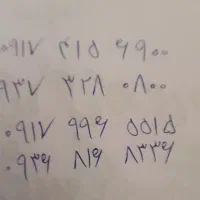 ۰۹۱۷ ۲۱۵ ۶۹۰۰
۹۳۷ ۳۲۸ ۰۸۰۰
۰۹۱۷ ۹۹۶ ۵۵۱۵
۰۹۳۶ ۸۱۶ ۸۳۳۶